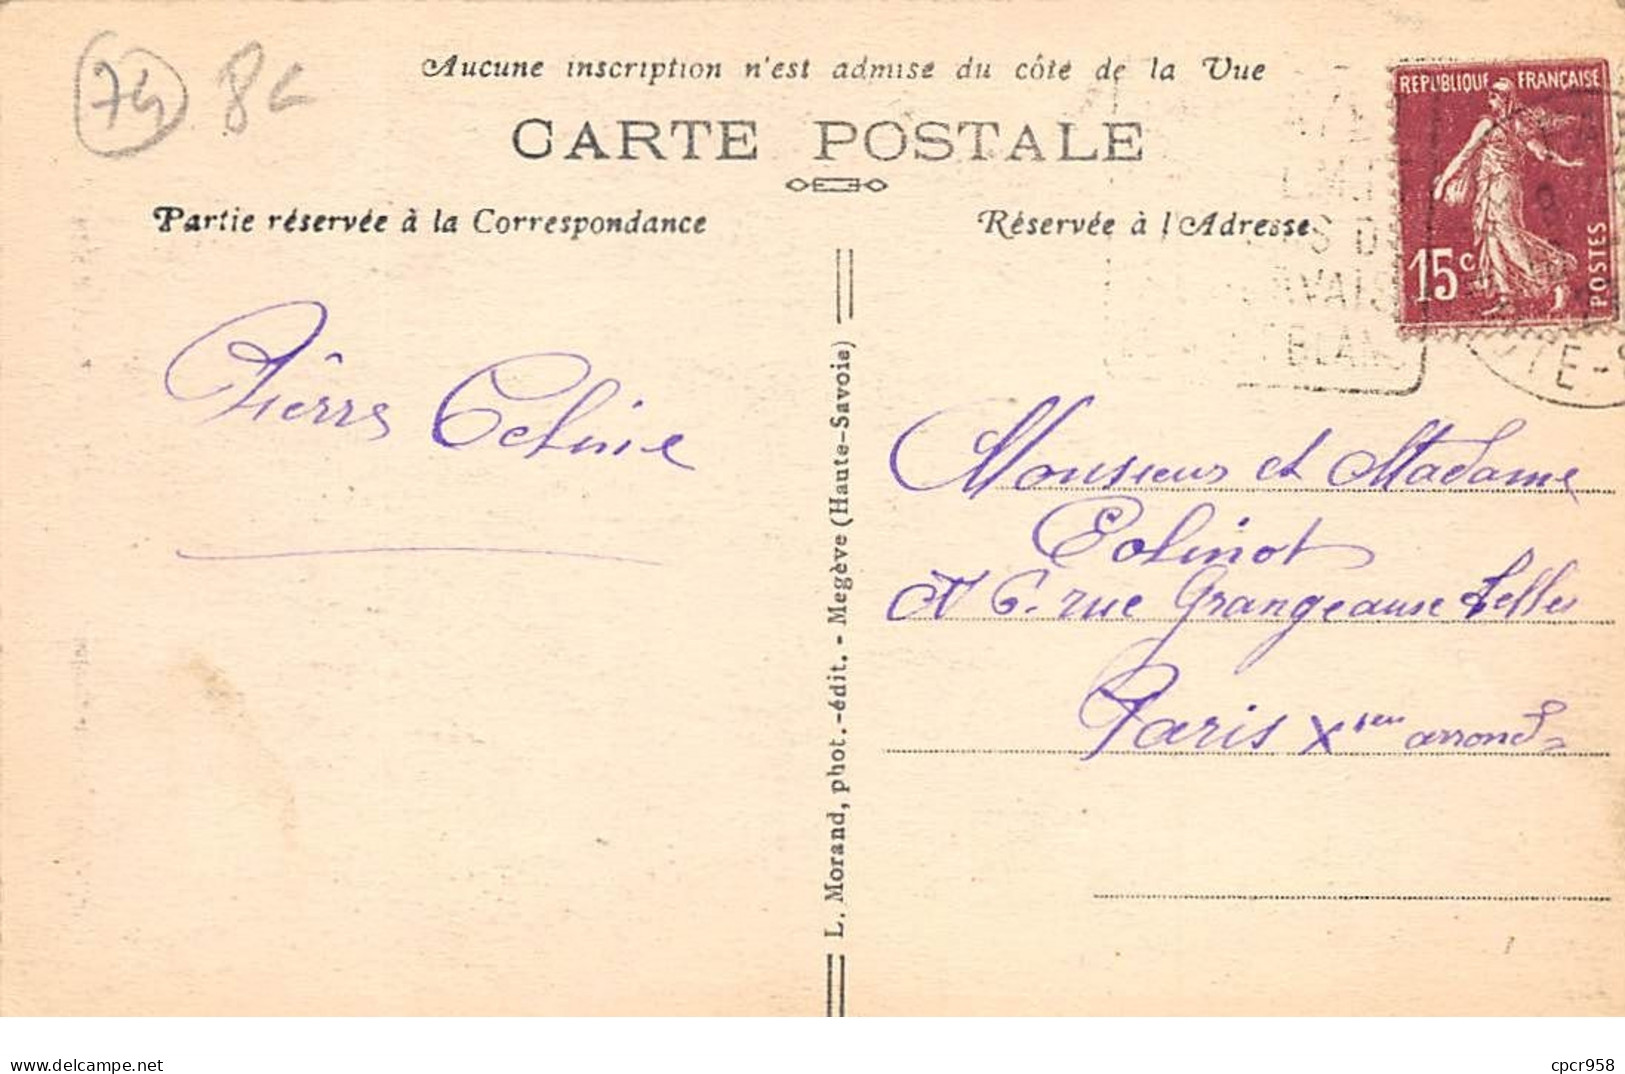 74 8€
Aucune inscription n'est admise du côté de la Vue
CARTE POSTALE
Partie réservée à la Correspondance
Réservée à l'Adresse
REPUBLIQUE FRANÇAISE
15c
POSTES
BLANC
Pierre Coline
Monsieur et Madame
Colinot
N 6. rue Grangeause Belles
Paris Xien arrond
L. Morand, phot.-édit. - Megève (Haute-Savoie)
delcampe.net
cpcr958